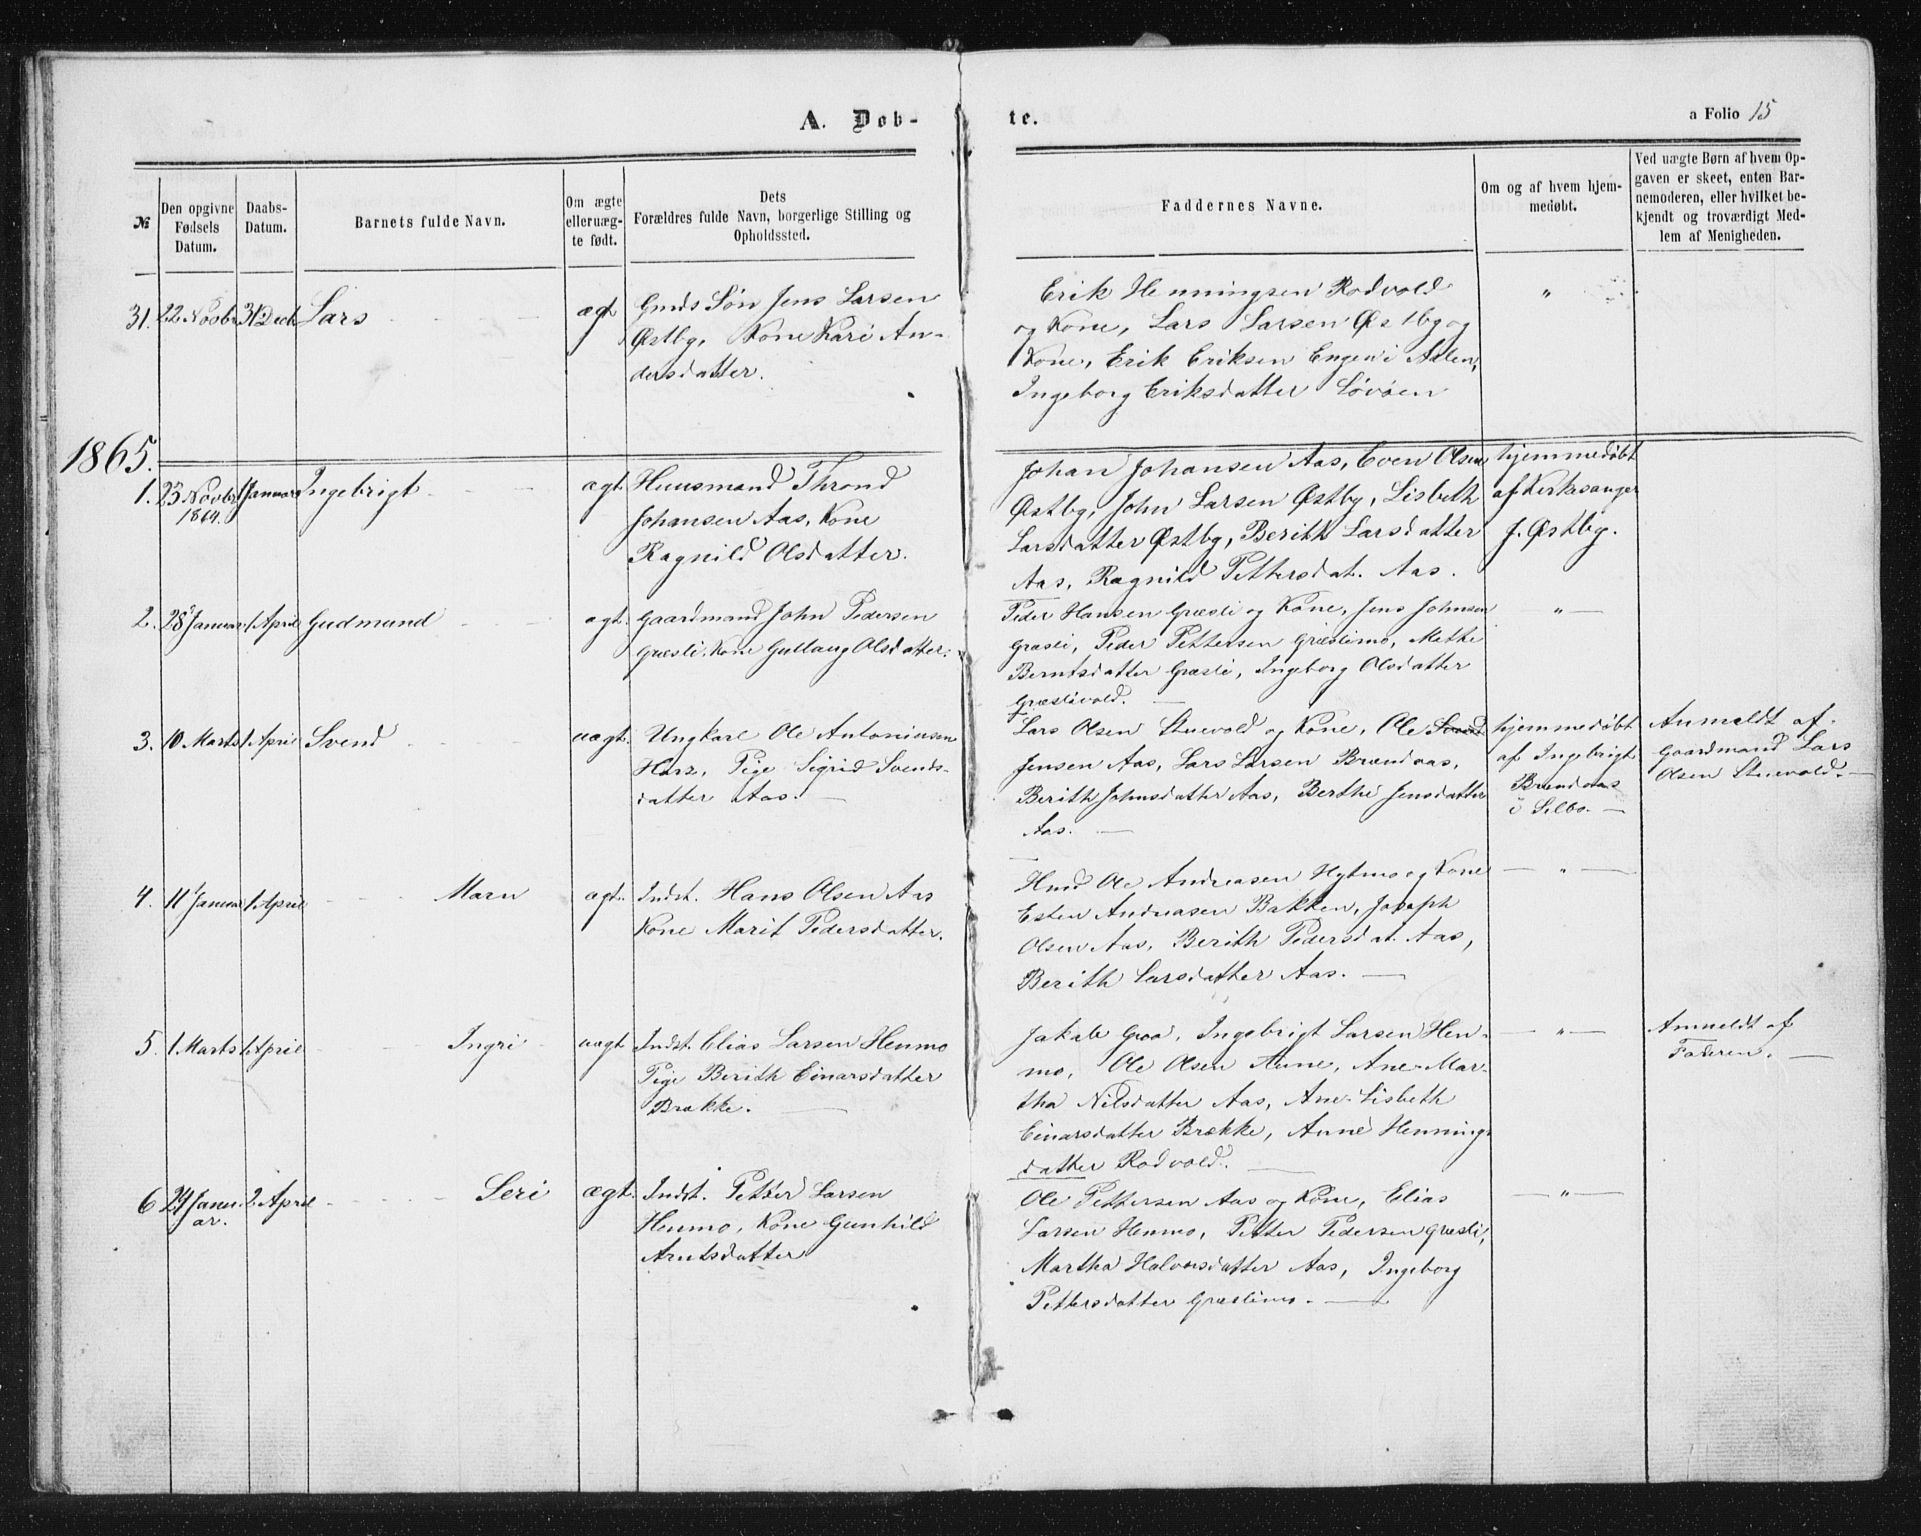 A. Døb-
te.
a Folio 15
№
Den opgivne Fødsels Datum.
Daabs-Datum.
Barnets fulde Navn.
Om ægte eller uæg-te født.
Dets
Forældres fulde Navn, borgerlige Stilling og Opholdssted.
Faddernes Navne.
Om og af hvem hjem-medøbt.
Ved uægte Børn af hvem Op-gaven er skeet, enten Bar-nemoderen, eller hvilket be-kjendt og troværdigt Med-lem af Menigheden.
31. 22 Novbr 31 Decb Lars ægt
Gmds Søn Jens Larsen
Østby, Kone Kari An-
dersdatter.
Erik Henningsen Rodvold
og Kone, Lars Larsen Østby og
Kone, Erik Eriksen Engen i Aalen,
Ingeborg Eriksdatter Løvøen
"
1865.
1. 23 Novbr 1864. 1 Januar Ingebrigt ægt.
Huusmand Thrond
Johansen Aas, Kone
Ragnild Olsdatter.
Johan Johansen Aas, Even Olsen
Østby, John Larsen Østby, Lisbeth
Larsdatter Østby, Berith Larsdatter
Aas, Ragnild Pettersdat. Aas.
hjemmedøbt
af Kirkesanger
J. Østby.
2. 28 Januar 1 April Gudmund ægt.
Gaardmand John Pedersen
Græsli, Kone Gullaug Olsdatter.
Peder Hansen Græsli og Kone, Jens Johnsen
Græsli, Peder Pettersen Græslimo, Methe
Berntsdatter Græsli, Ingeborg Olsdatter
Græslivold.
"
3. 10 Marts 1 April Svend uægt.
Ungkarl Ole Antoniusen
Harz, Pige Sigrid Svends-
datter Aas.
Lars Olsen Stuevold og Kone, Ole Svend
Jensen Aas, Lars Larsen Brændaas,
Berith Johnsdatter Aas, Berthe Jensdatter
Aas.
hjemmedøbt
af Ingebrigt
Brændaas
i Selbo.
Anmeldt af
Gaardmand Lars
Olsen Stuevold.
4. 11 Januar 1 April Marn ægt.
Indst. Hans Olsen Aas
Kone Marit Pedersdatter.
Hmd Ole Andreasen Hytmo og Kone
Esten Andreasen Bakken, Joseph
Olsen Aas, Berith Pedersdat. Aas,
Berith Larsdatter Aas.
"
5. 1 Marts 1 April Ingri uægt
Indst. Elias Larsen Henmo
Pige Berith Einarsdatter
Brække.
Jakob Graa, Ingebrigt Larsen Hen-
mo, Ole Olsen Aune, Ane Mar-
tha Nilsdatter Aas, Ane Lisbeth
Einarsdatter Brække, Anne Hennings
datter Rodvold.
"
Anmeldt af
Faderen.
6 24 Janu-ar. 2 April Seri ægt.
Indst. Petter Larsen
Henmo, Kone Gunhild
Arntsdatter
Ole Pettersen Aas og Kone, Elias
Larsen Henmo, Petter Pedersen Græsli,
Martha Halvorsdatter Aas, Ingeborg
Pettersdatter Græslimo.
"